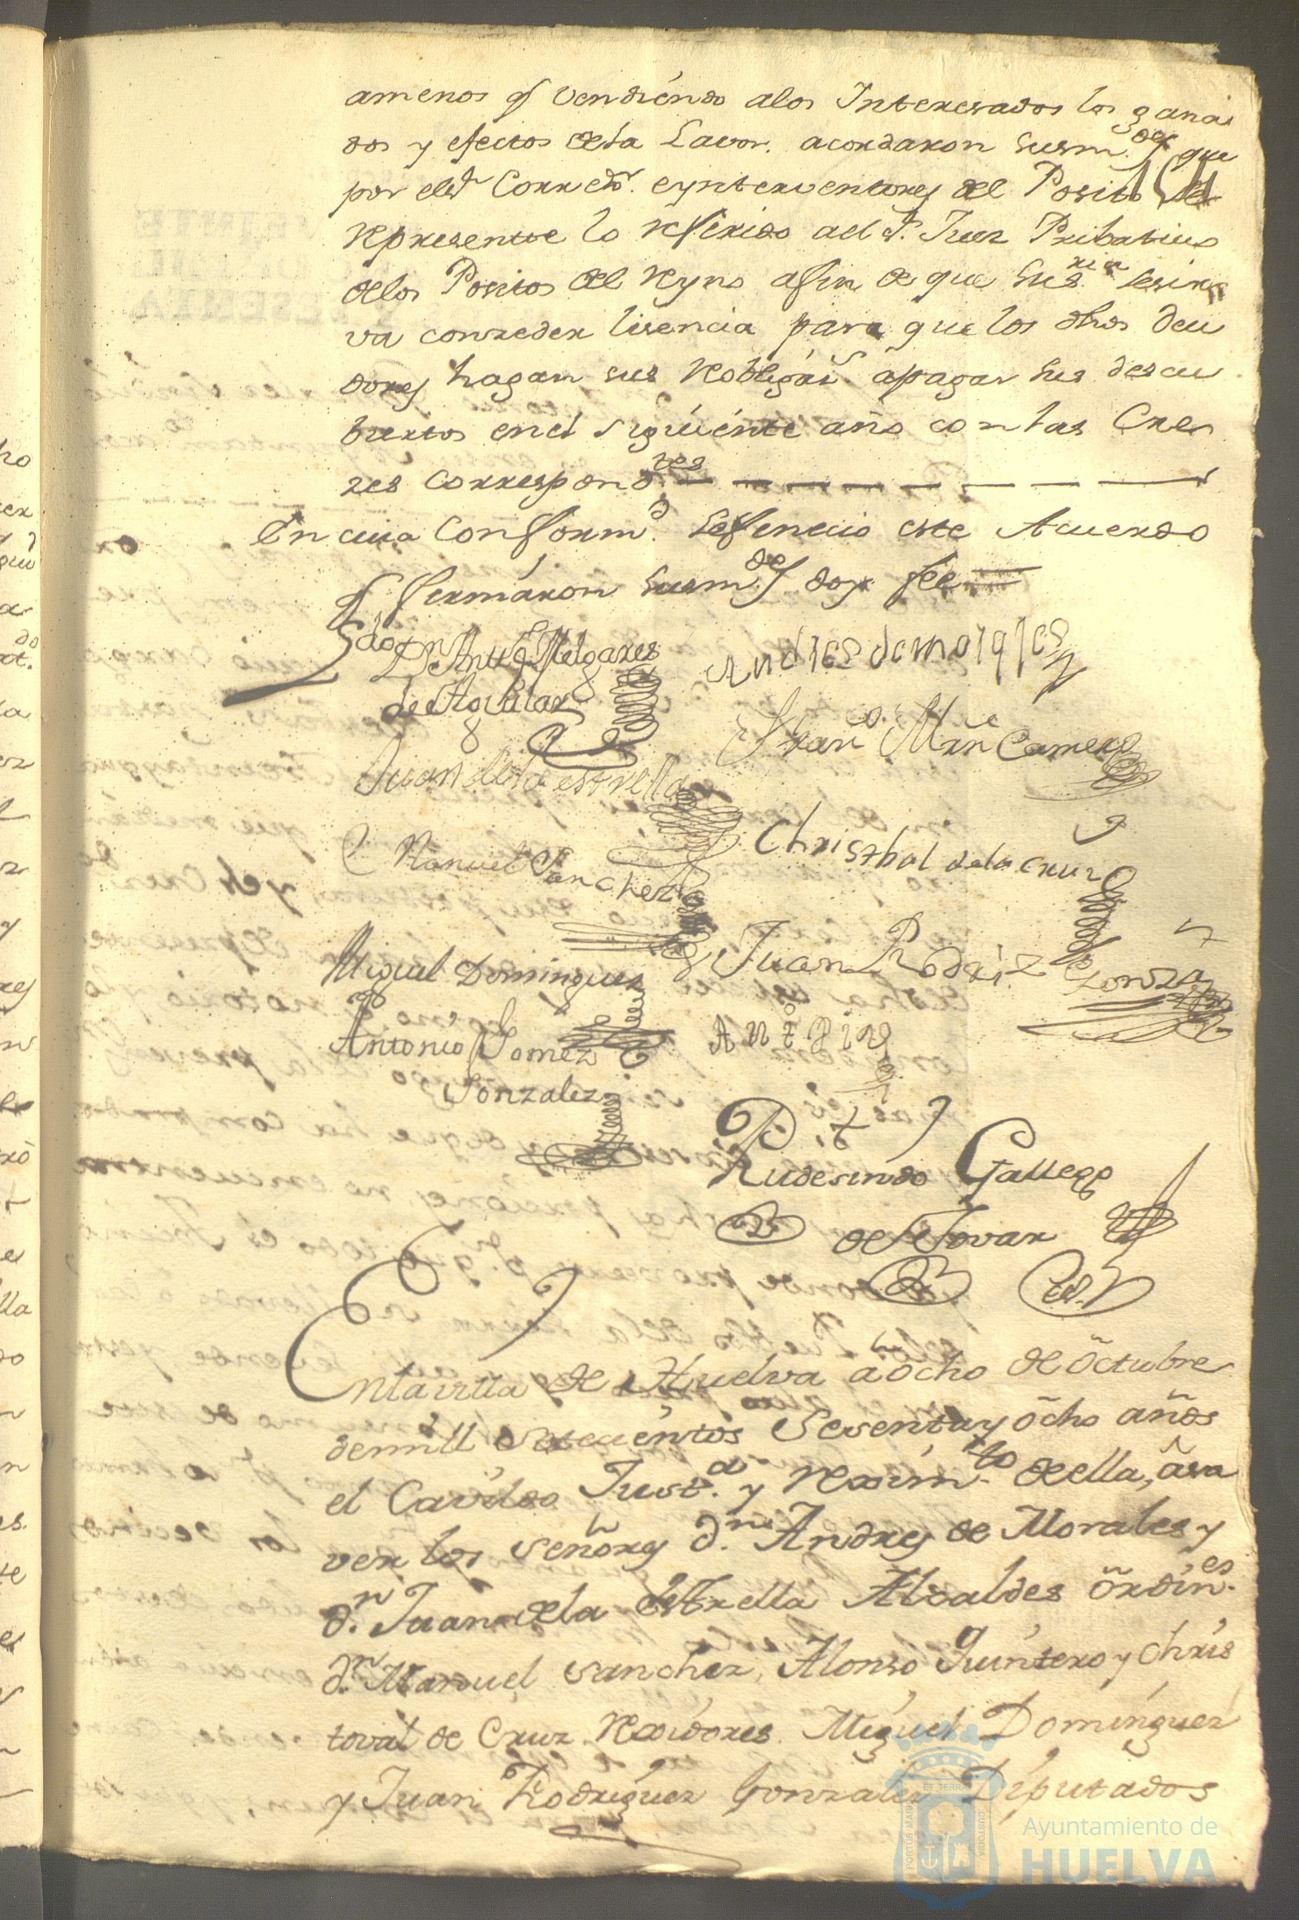 amenos q.e vendiendo alos Interesados los gana
dos y efectos dela Lavor. acordaron susm.des que
por el s.r Corred.r e ynterventores del Posito se
represente lo referido al S.r Juez Pribativo
delos Positos del Reyno afin de que Su s.ria sesir
va conzeder lisencia para que los dhos deu
dores hagan sus reobligaz.s apagar sus descu
biertos en el siguiente año con las Cre
zes correspond.tes
En cuia Conform.d sefenecio este Acuerdo
q firmáron susm.des doy fee
Lizdo Dn Antt.o Melgares
de Aguilar
Andres de morales
Fran.co Mrn Camero
Juan de la estrella
Manuel Sanchez
Christobal dela cruz
Miguel Dominguez
Juan Rodriz Gonzz
Antonio Gomez
Gonzalez
Ant.o Piz
Rudesindo Gallego
de Tovar
Enlavilla de Huelva aocho de octubre
demill setecientos Sesentay ocho años
el Cavildo Just.a y Reximto. deella, asa
ver los señores d.n Andres de Morales y
d.n Juan dela Estrella Alcaldes ordin.es
d.n Manuel Sanchez, Alonso Quintero y Chris
toval de Cruz Rexidores Miguel Dominguez
y Juan Rodriguez Gonzalez Diputados
Ayuntamiento de
HUELVA